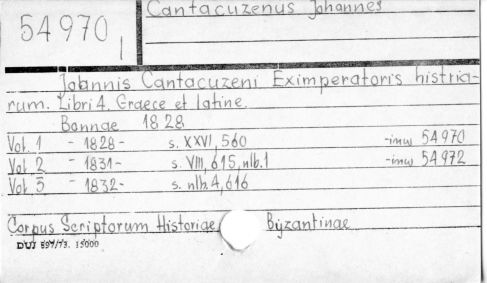 54970
I
Cantacuzenus Johannes
Joannis Cantacuzeni Eximperatoris histria-
rum. Libri 4. Graece et latine.
Bonnae 1828
Vol. 1 - 1828- s. XXVI, 560 -inw 54970
Vol. 2 - 1831- s. VIII, 615, nlb.1 -inw 54972
Vol. 3 - 1832- s. nlb. 4, 616
Corpus Scriptorum Historiae Byzantinae
DUJ 897/73. 15000